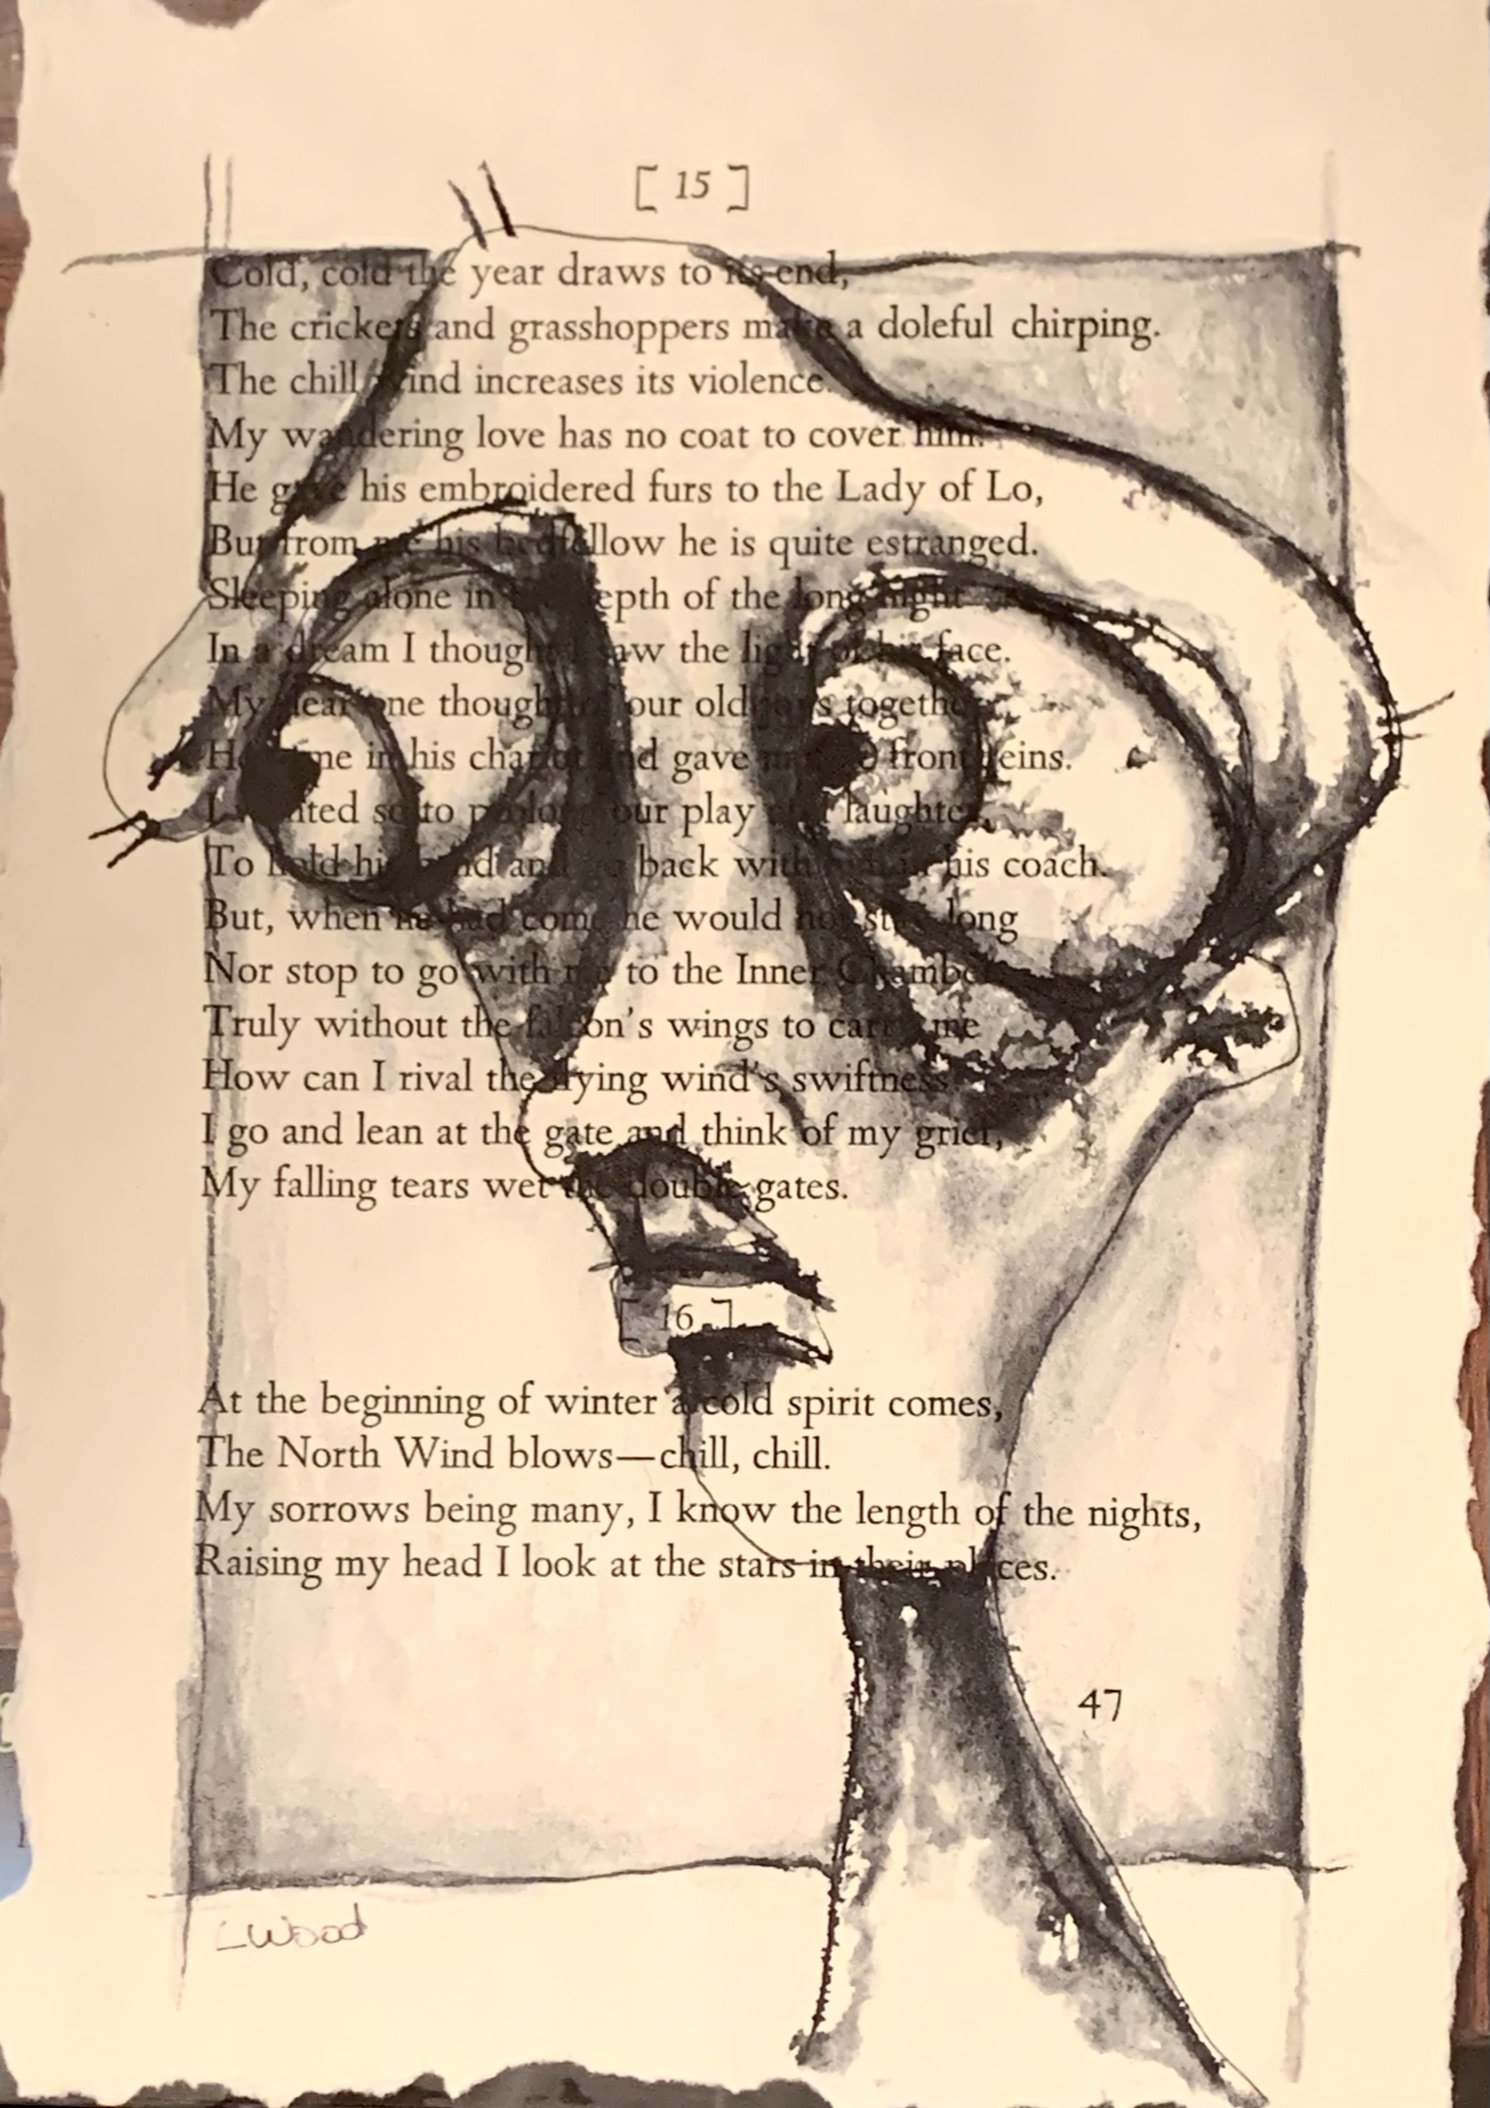 [ 15 ]
Cold, cold the year draws to its end,
The crickets and grasshoppers make a doleful chirping.
The chill wind increases its violence.
My wandering love has no coat to cover him.
He gave his embroidered furs to the Lady of Lo,
But from me his bedfellow he is quite estranged.
Sleeping alone in the depth of the long night
In a dream I thought I saw the light of his face.
My dear one thought of our old joys together,
He came in his chariot and gave me the front reins.
I wanted so to prolong our play and laughter,
To hold his hand and go back with him in his coach.
But, when he had come he would not stay long
Nor stop to go with me to the Inner Chamber.
Truly without the falcon's wings to carry me
How can I rival the flying wind's swiftness
I go and lean at the gate and think of my grief,
My falling tears wet the double gates.
[ 16 ]
At the beginning of winter a cold spirit comes,
The North Wind blows—chill, chill.
My sorrows being many, I know the length of the nights,
Raising my head I look at the stars in their places.
47
Wood